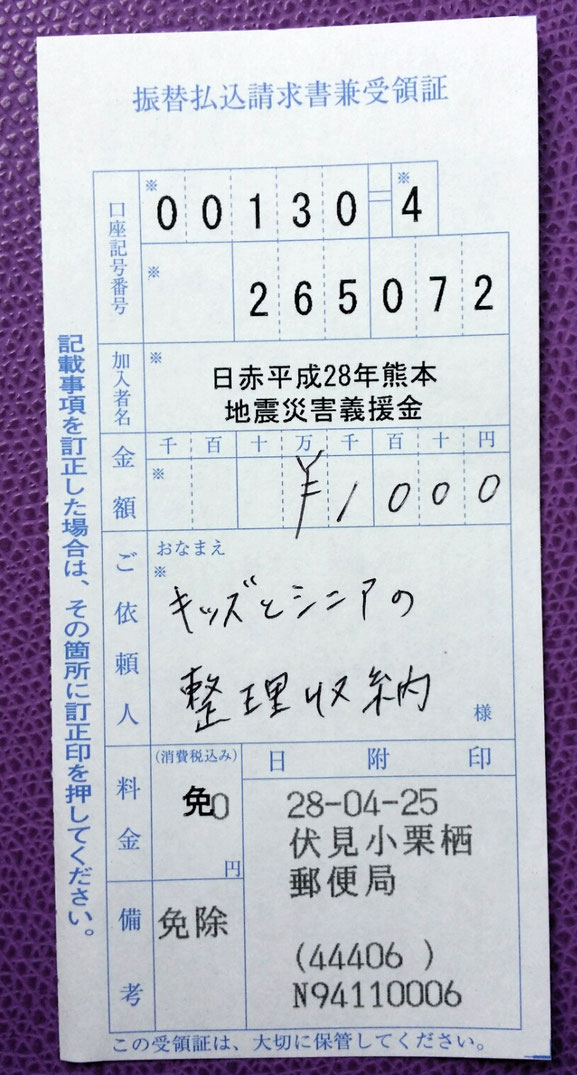 振替払込請求書兼受領証
口座記号番号
※ 00130=※4
※ 265072
加入者名
※
日赤平成28年熊本
地震災害義援金
金額
千 百 十 万 千 百 十 円
※ ¥1000
ご依頼人
おなまえ
※
キッズとシニアの
整理収納
様
料金
(消費税込み)
免0
円
備考
免除
日附印
28-04-25
伏見小栗栖
郵便局
(44406 )
N94110006
記載事項を訂正した場合は、その箇所に訂正印を押してください。
この受領証は、大切に保管してください。